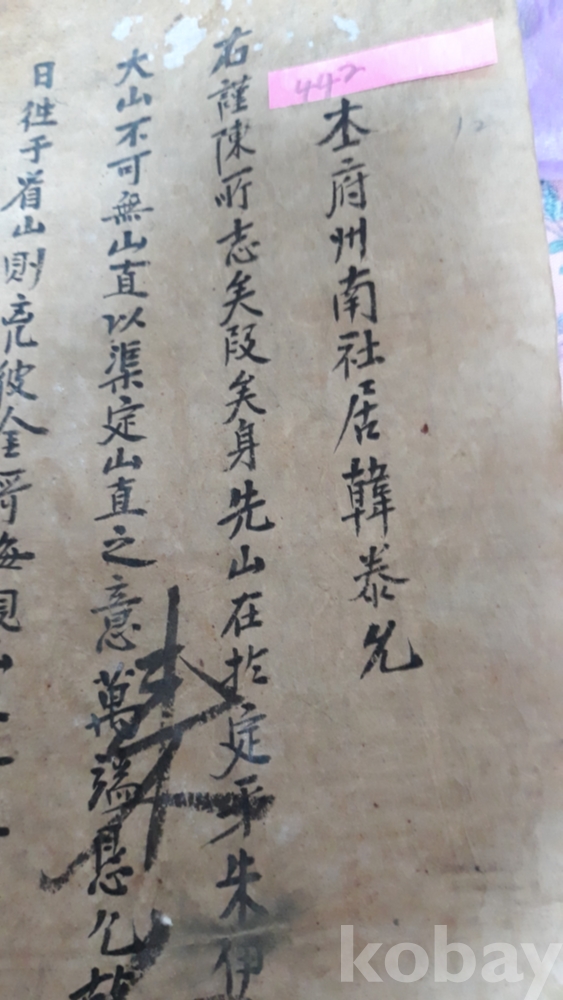 442
本府州南社居韓泰兄
右謹陳所志矣段矣身先山在於定平朱伊
大山不可無山直以渠定山直之意萬端懇乞故
日徃于省山則 彼金哥每
kobay